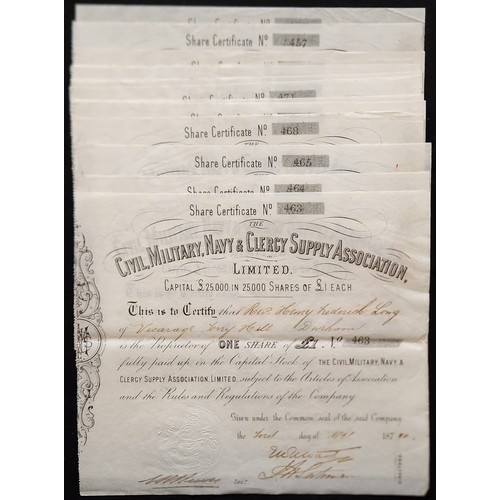 Share Certificate Nº
Share Certificate Nº 457
Share Certificate Nº 471
Share Certificate Nº 468
Share Certificate Nº 465
Share Certificate Nº 464
Share Certificate Nº 463
THE
CIVIL, MILITARY, NAVY & CLERGY SUPPLY ASSOCIATION,
LIMITED.
CAPITAL £25,000, IN 25,000 SHARES OF £1 EACH
This is to Certify that Revd Henry Frederick Long
of Vicarage Ferry Hill Durham
is the Proprietor of ONE SHARE of £1. Nº 463
fully paid up, in the Capital Stock of THE CIVIL, MILITARY, NAVY &
CLERGY SUPPLY ASSOCIATION, LIMITED, subject to the Articles of Association
and the Rules and Regulations of the Company
Given under the Common seal of the said Company
the first day of 187
DIRECTORS